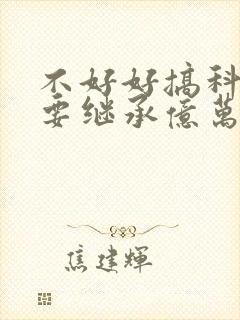 不好好搞科
要继承億萬
焦建輝